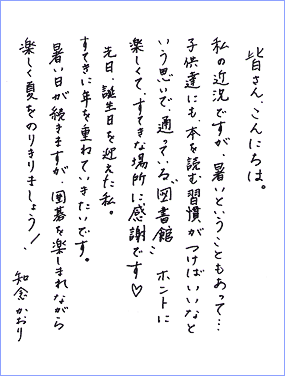 皆さん、こんにちは。
私の近況ですが、暑いということもあって…
子供達にも、本を読む習慣がつけばいいなと
いう思いで、通っている図書館… ホントに
楽しくて、すてきな場所に感謝です♡
先日、誕生日を迎えた私。
すてきに年を重ねていきたいです。
暑い日が続きますが、囲碁を楽しまれながら
楽しく夏をのりきりましょう!
知念かおり